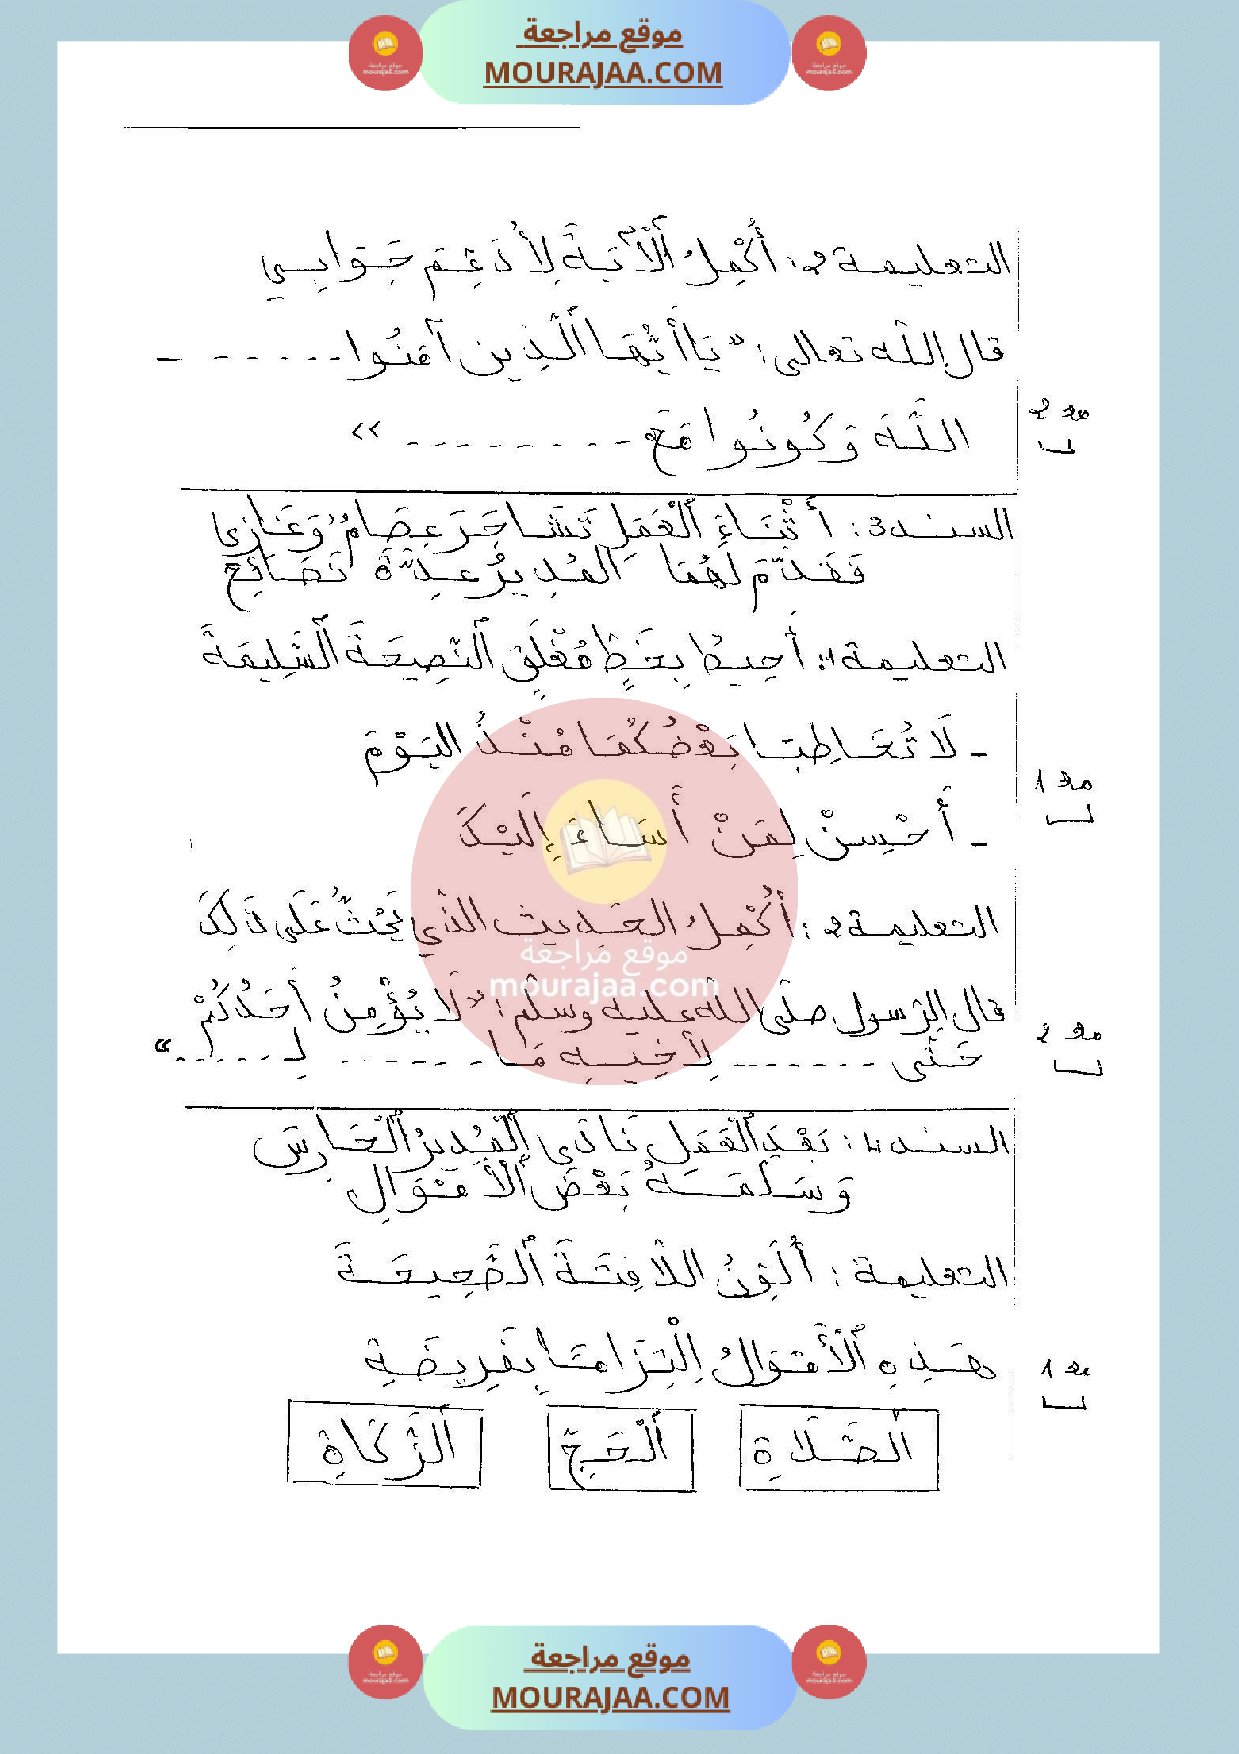 موقع مراجعة
MOURAJAA.COM
التعليمة 2: أُكْمِلُ ٱلْآيَةَ لِأُدَعِّمَ جَوَابِي
قال الله تعالى: "يَا أَيُّهَا ٱلَّذِينَ آمَنُوا ......
اللَّهَ وَكُونُوا مَعَ ........ "
مع 2
السند 3: أَثْنَاءَ ٱلْعَمَلِ تَشَاجَرَ عِصَامُ وَغَازِي
فَقَدَّمَ لَهُمَا المُدِيرُ عِدَّةَ نَصَائِحَ
التعليمة 1: أُحِيطُ بِخَطٍّ مُغْلَقٍ ٱلنَّصِيحَةَ ٱلسَّلِيمَةَ
- لَا تُخَاطِبَا بَعْضُكُمَا مُنْذُ اليَوْمَ
مع 1
- أَحْسِنْ لِمَنْ أَسَاءَ إِلَيْكَ
التعليمة 2: أُكْمِلُ الحَدِيثَ الذي يَحُثُّ عَلَى ذَلِكَ
قال الرسول صلّى الله عليه وسلّم: "لَا يُؤْمِنُ أَحَدُكُمْ
حَتَّى ....... لِأَخِيهِ مَا ....... لِ ......"
مع 2
السند 4: بَعْدَ ٱلْعَمَلِ نَادَى ٱلْمُدِيرُ ٱلْحَارِسَ
وَسَلَّمَهُ بَعْضَ ٱلْأَمْوَالِ
التعليمة: أُلَوِّنُ اللَّافِتَةَ ٱلصَّحِيحَةَ
هَذِهِ ٱلْأَمْوَالُ اِلْتِزَامًا بِفَرِيضَةِ
مع 1
ٱلصَّلَاةِ ٱلْحَجِّ ٱلزَّكَاةِ
موقع مراجعة
mourajaa.com
موقع مراجعة
MOURAJAA.COM